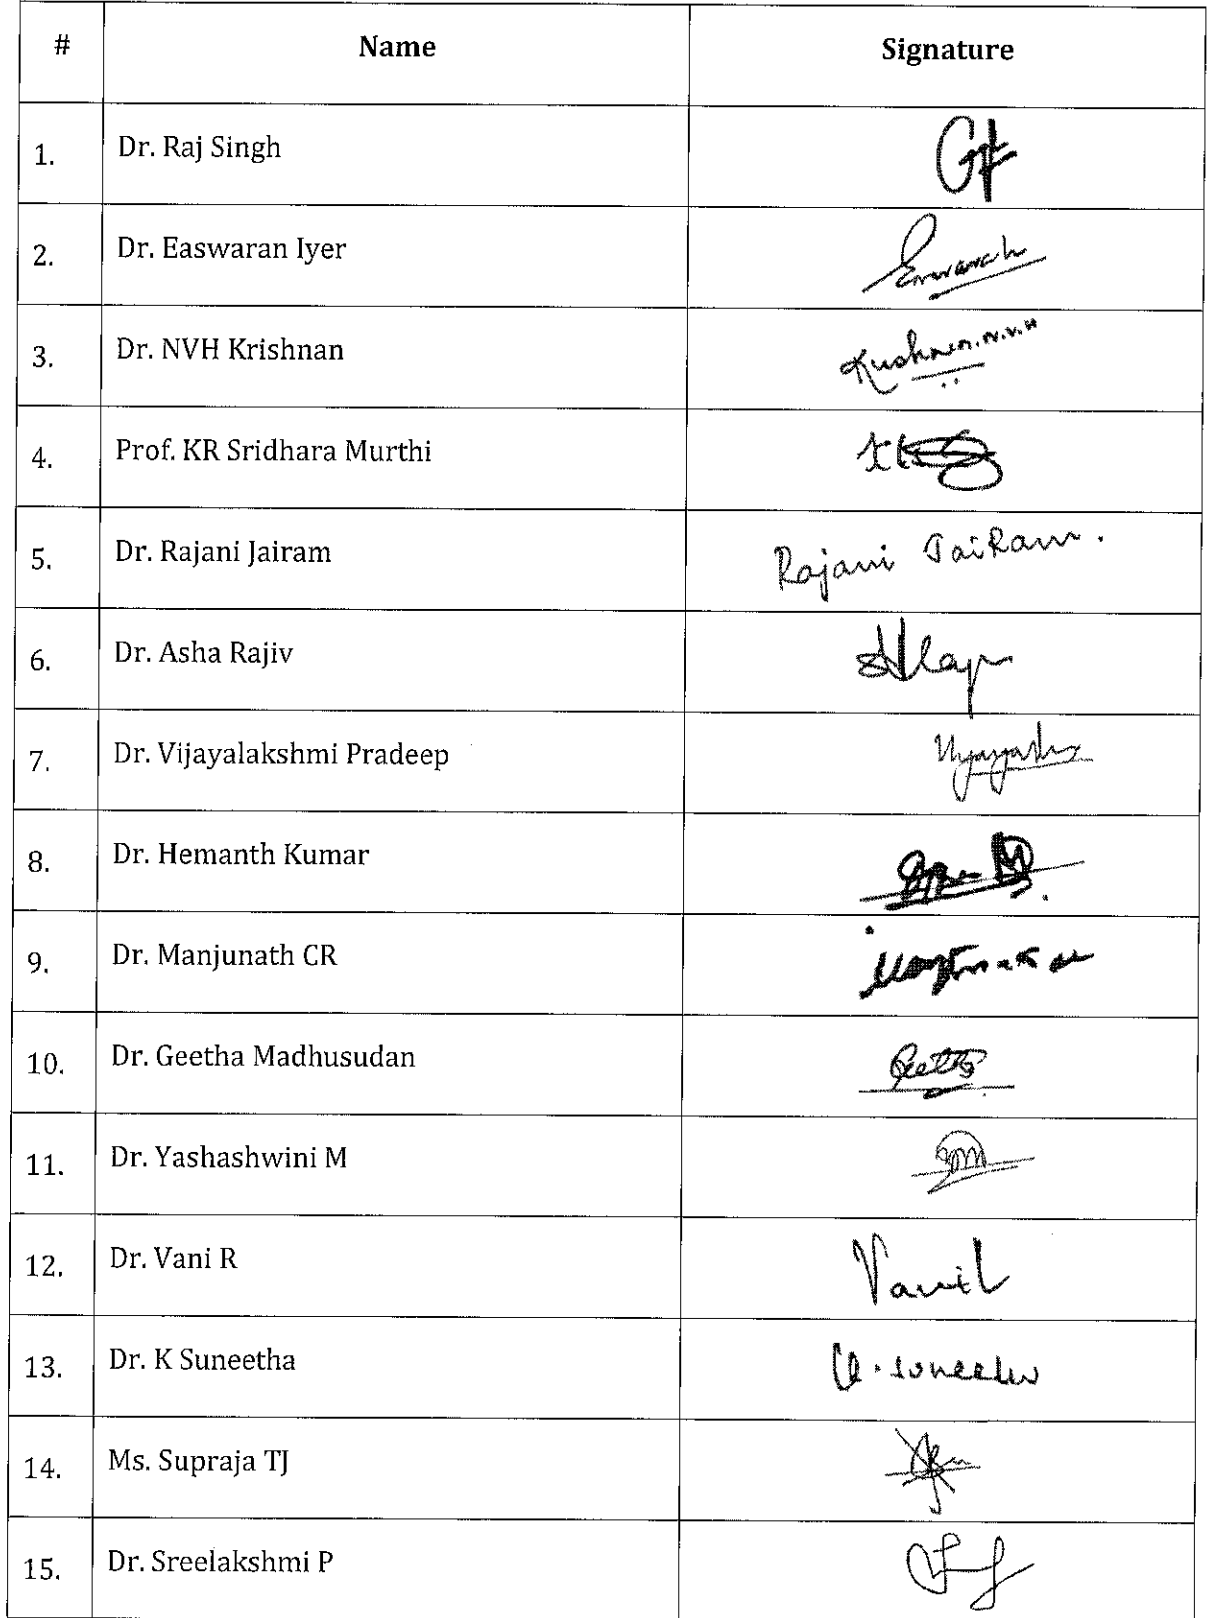 # Name Signature
1. Dr. Raj Singh
2. Dr. Easwaran Iyer
3. Dr. NVH Krishnan Krishnan.N.V.H
4. Prof. KR Sridhara Murthi
5. Dr. Rajani Jairam Rajani JaiRam.
6. Dr. Asha Rajiv
7. Dr. Vijayalakshmi Pradeep
8. Dr. Hemanth Kumar
9. Dr. Manjunath CR
10. Dr. Geetha Madhusudan Geetha
11. Dr. Yashashwini M
12. Dr. Vani R Vani R
13. Dr. K Suneetha K. Suneetha
14. Ms. Supraja TJ
15. Dr. Sreelakshmi P